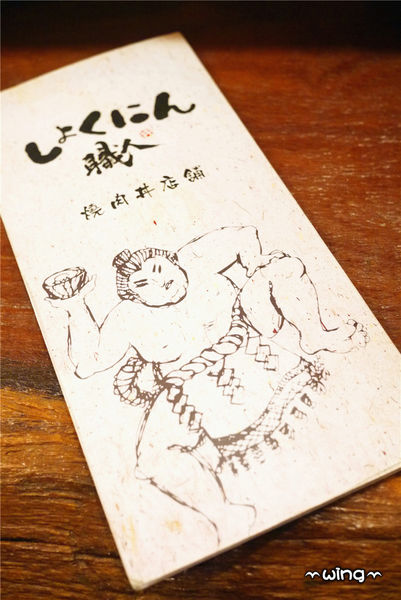 しょくにん
職人
燒肉丼店舖
wing